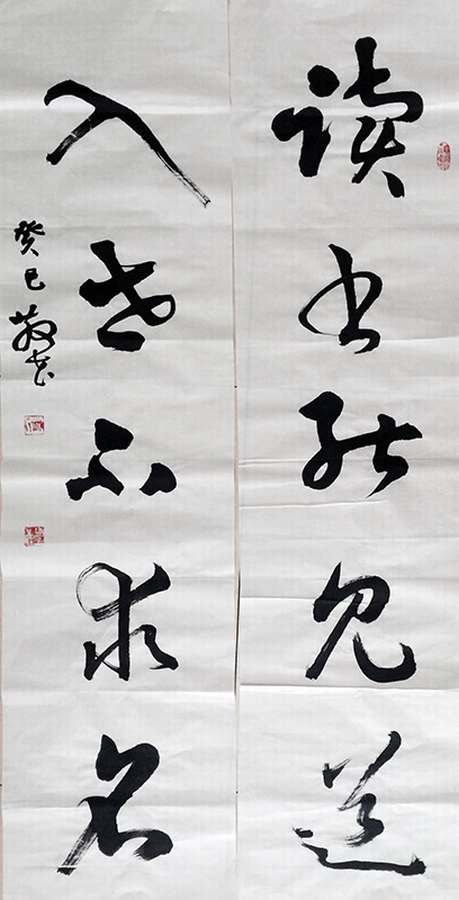 读书能见道
入世不求名
癸巳